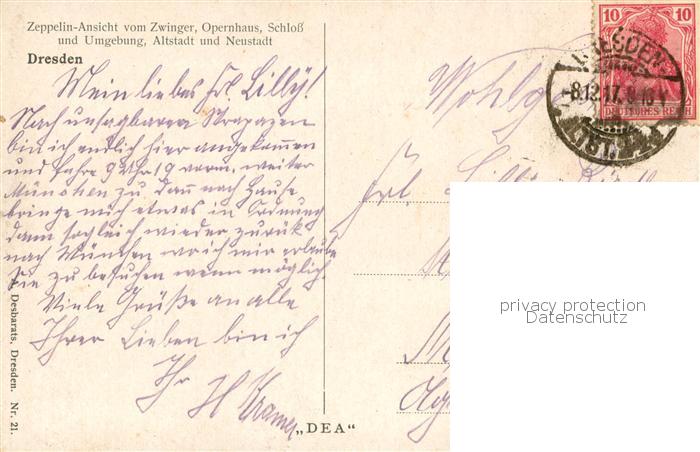 Zeppelin-Ansicht vom Zwinger, Opernhaus, Schloß
und Umgebung, Altstadt und Neustadt
Dresden
Mein liebes Frl. Lilly!
Nach unsagbaren Strapazen
bin ich endlich hier angekommen
und fahre 9 Uhr 19 vorm. weiter
München zu dann nach Hause
bringe mich etwas in Ordnung
dann sogleich wieder zurück
nach München wo ich mir erlaube
Sie zu besuchen wenn möglich.
Viele Grüße an alle
Ihrer Lieben bin ich
Ihr
H Kramer
Desbarats, Dresden. Nr. 21.
„DEA"
10 10
DEUTSCHES REICH
DRESDEN
-8.12.17.8-
ALTST.
Wohlg
Frl.
privacy protection
Datenschutz